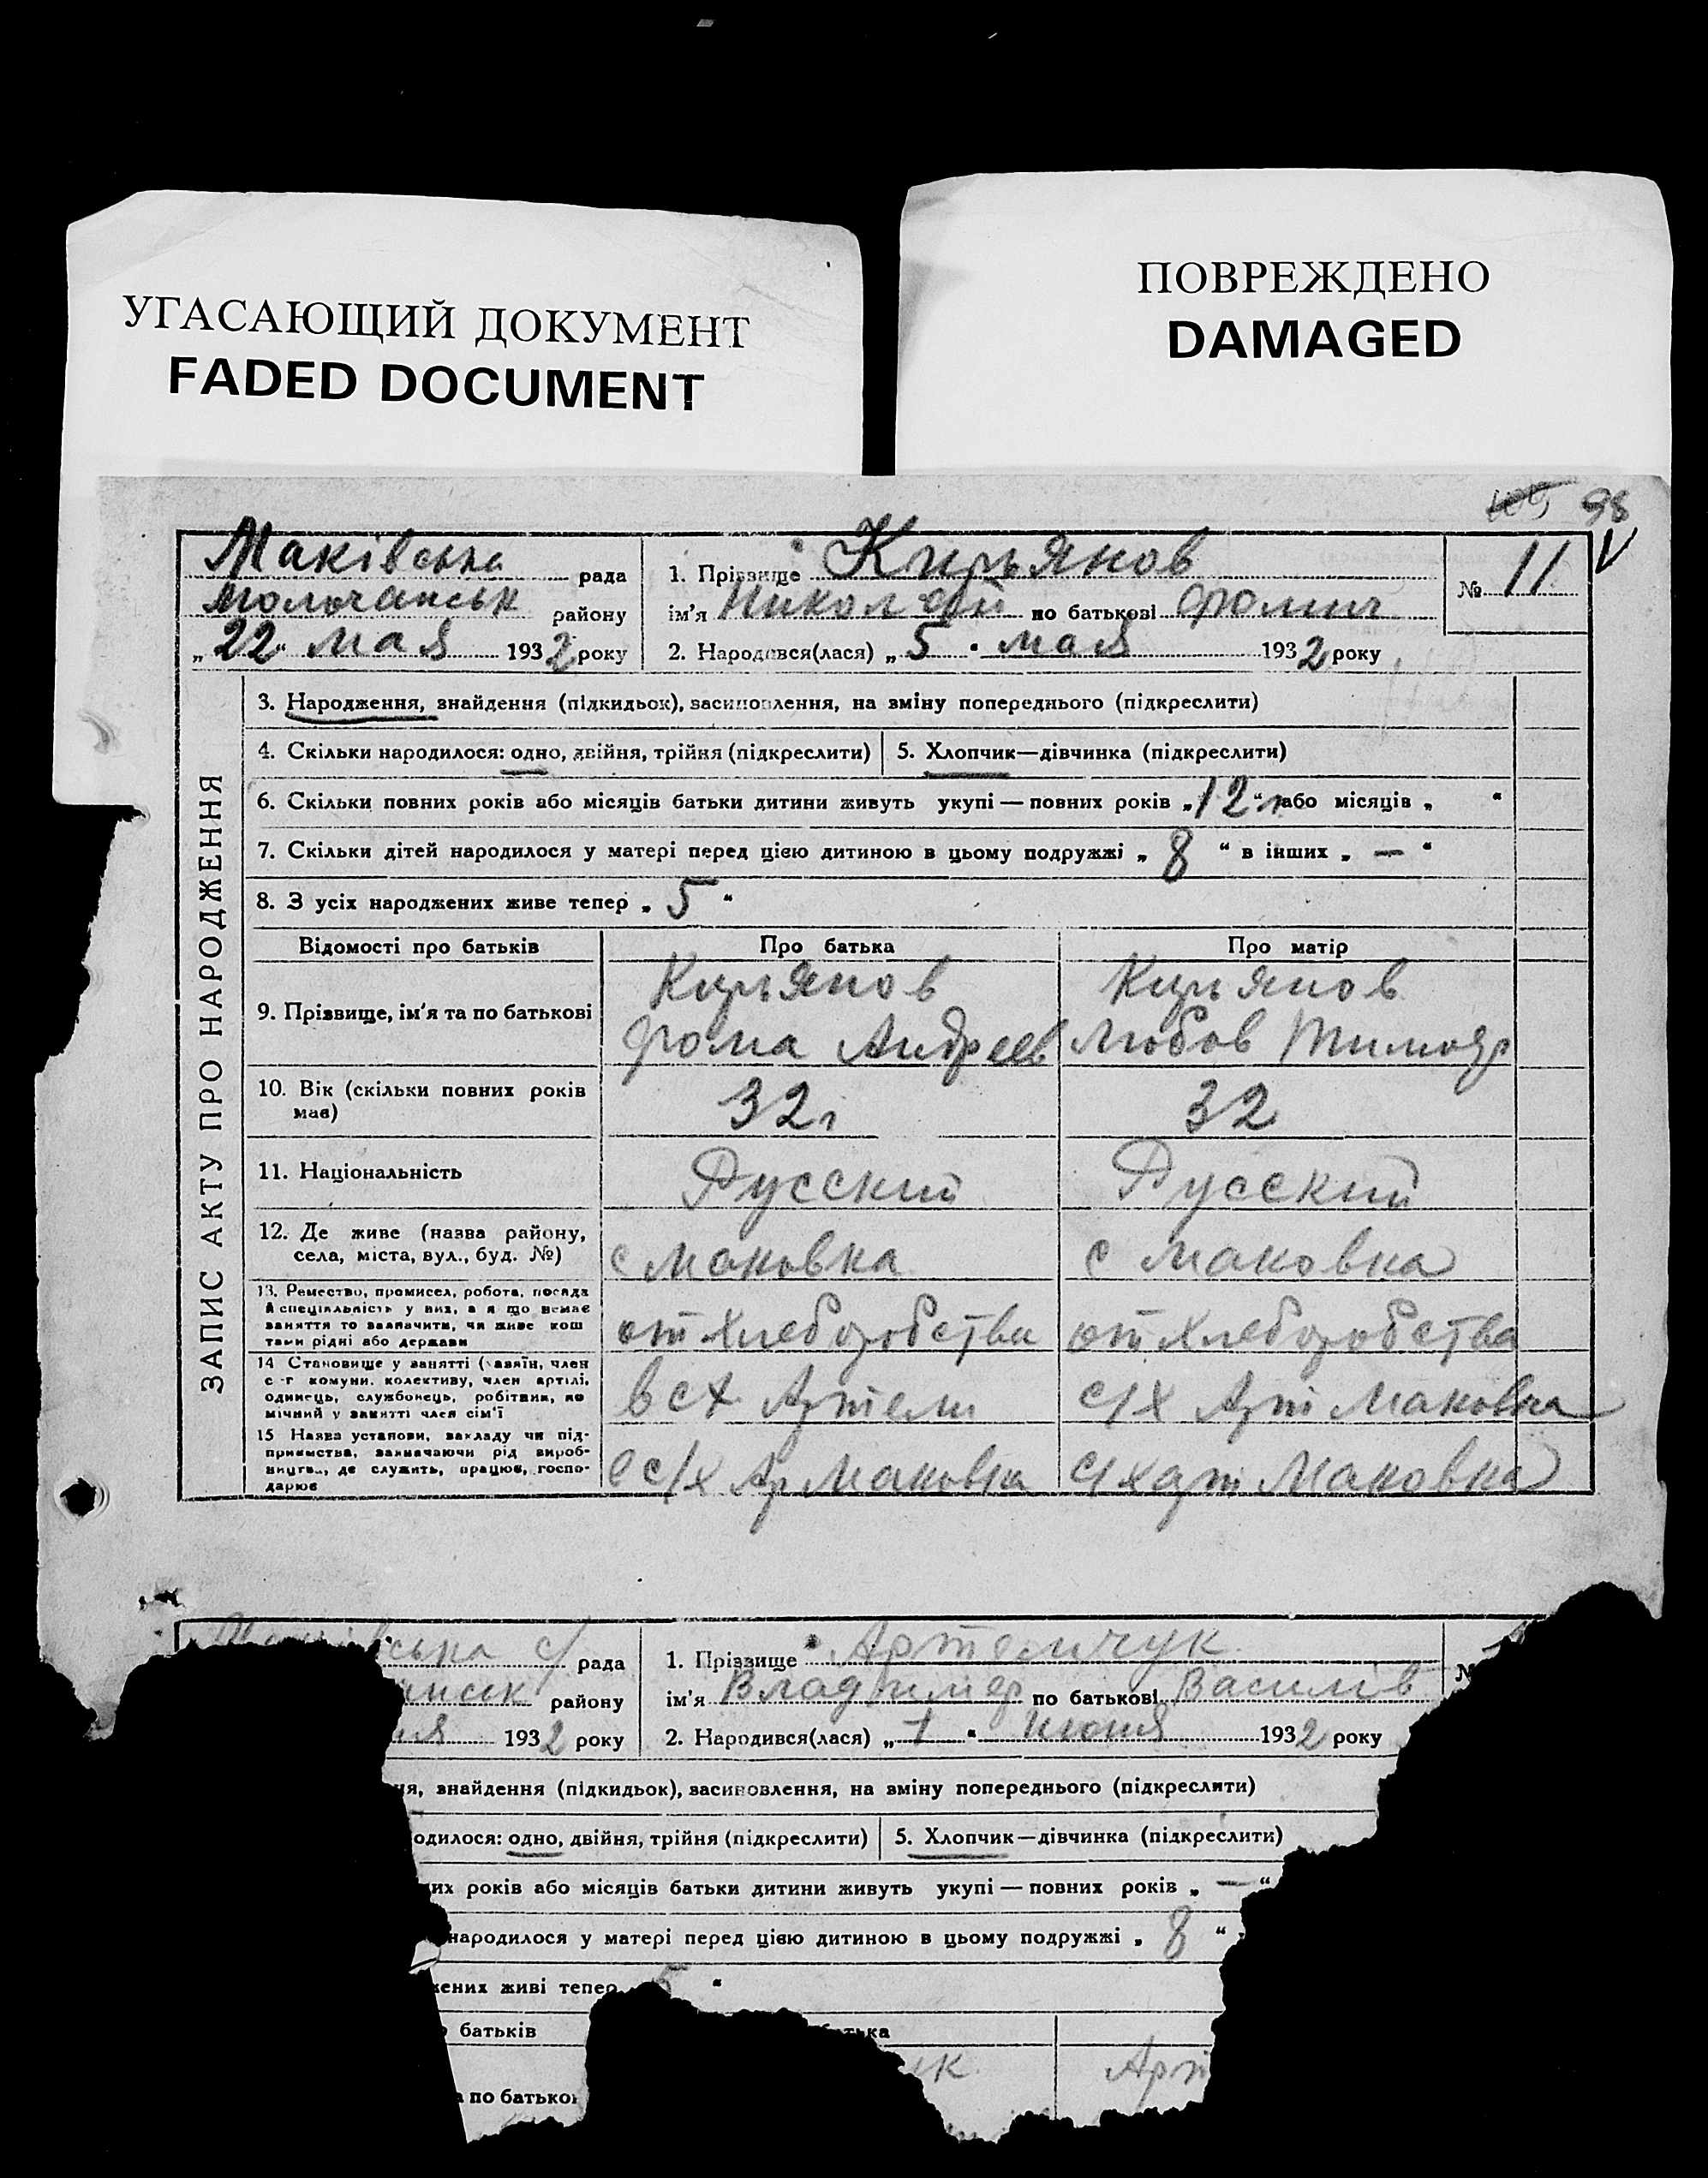 УГАСАЮЩИЙ ДОКУМЕНТ
FADED DOCUMENT
ПОВРЕЖДЕНО
DAMAGED
98
ЗАПИС АКТУ ПРО НАРОДЖЕННЯ
Маківська рада
Молочанськ району
„22“ мая 1932 року
1. Прізвище Кирьянов
ім'я Николай по батькові Фомич
2. Народився(лася) „5“ мая 1932 року
№ 11
3. Народження, знайдення (підкидьок), засиновлення, на зміну попереднього (підкреслити)
4. Скільки народилося: одно, двійня, трійня (підкреслити)
5. Хлопчик—дівчинка (підкреслити)
6. Скільки повних років або місяців батьки дитини живуть укупі — повних років „12“ або місяців „ “
7. Скільки дітей народилося у матері перед цією дитиною в цьому подружжі „8“ в інших „—“
8. З усіх народжених живе тепер „5“
Відомості про батьків Про батька Про матір
9. Прізвище, ім'я та по батькові
Кирьянов
Фома Андреев
Кирьянов
Любов Тимоф
10. Вік (скільки повних років має)
32 г
32
11. Національність
Русский
Русский
12. Де живе (назва району, села, міста, вул., буд. №)
с Маковка
с Маковка
13. Ремество, промисел, робота, посада й спеціальність у них, а я що немає заняття то зазначити, чи живе кош тами рідні або держави
от хлеборобства
от хлеборобства
14 Становище у занятті (хазяїн, член с-г комуни, колективу, член артілі, одинець, службонець, робітник, по мічний у занятті член сім'ї
в сх Артели
с/х Арт Маковка
15 Назва установи, закладу чи підприємства, зазначаючи рід виробництва, де служить, працює, господарює
с/х Ар Маковка
с/х арт Маковка
ська с/ рада
анськ району
1932 року
1. Прізвище Артемчук
ім'я Владимир по батькові Василів
2. Народився(лася) „1“ июня 1932 року
ня, знайдення (підкидьок), засиновлення, на зміну попереднього (підкреслити)
одилося: одно, двійня, трійня (підкреслити)
5. Хлопчик—дівчинка (підкреслити)
их років або місяців батьки дитини живуть укупі — повних років „—“
народилося у матері перед цією дитиною в цьому подружжі „8“
жених живі тепер 5 “
батьків
батька
по батькові
ук
Арт